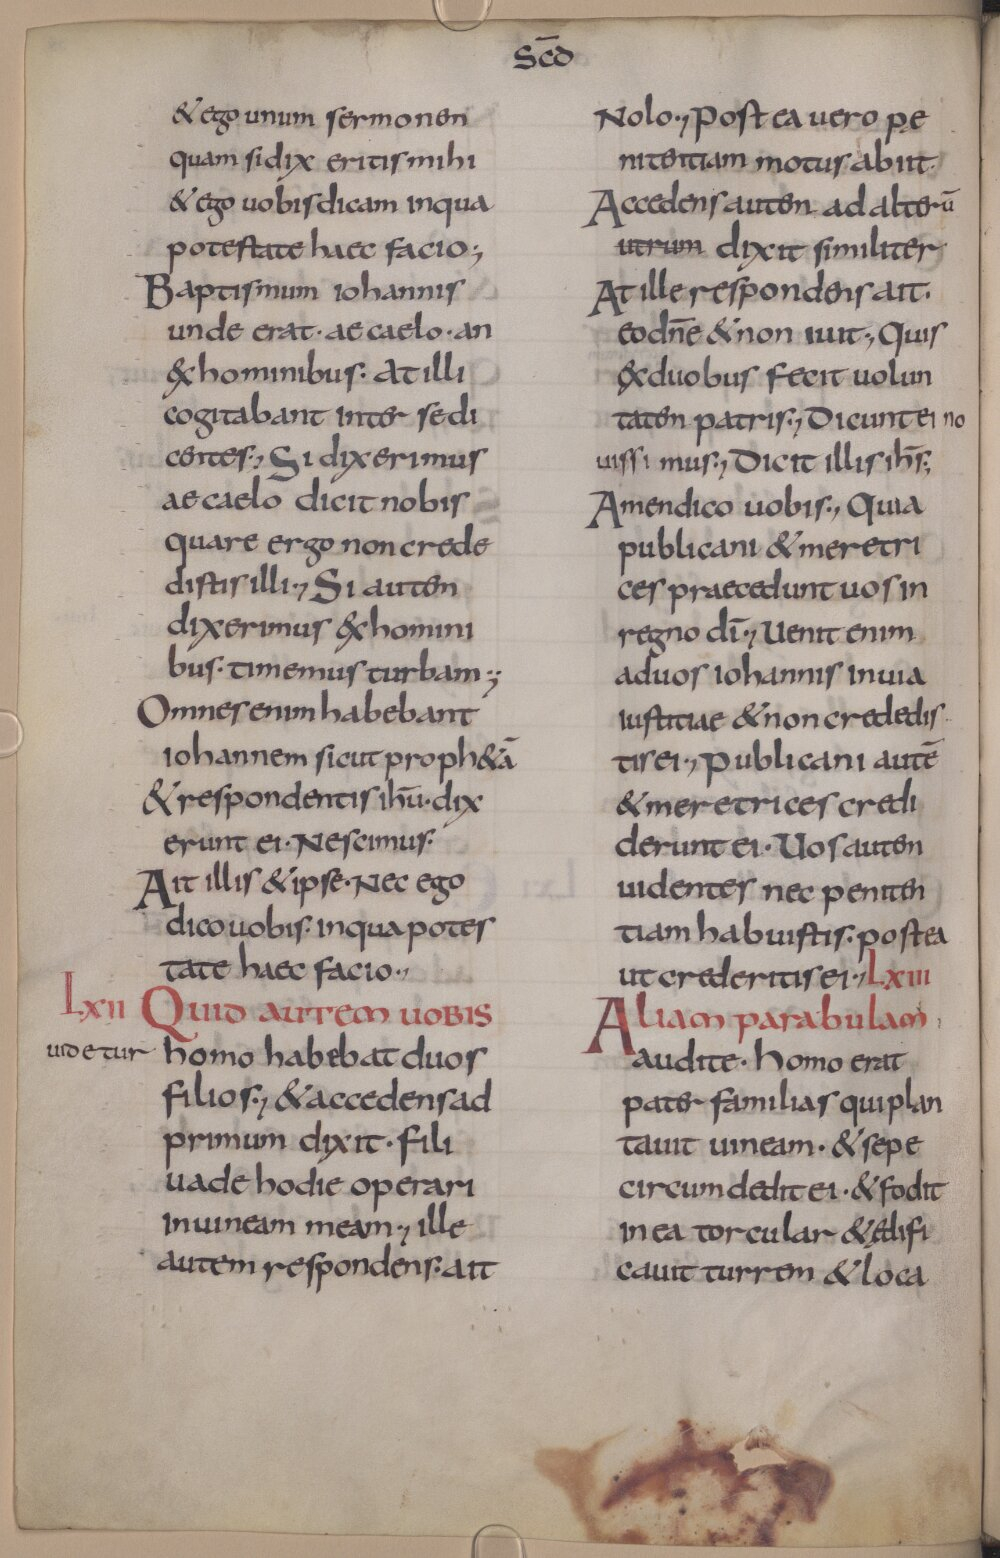 Scd̄
& ego unum sermonen
quam si dix eritis mihi
& ego uobis dicam inqua
potestate haec facio;
Baptismum iohannis
unde erat· ae caelo· an
&x hominibus· At illi
cogitabant inter se di
centes·, Si dixerimus
ae caelo dicit nobis
quare ergo non crede
distis illi·, Si auten
dixerimus &x homini
bus· timemus turbam·;
Omnes enim habebant
iohannem sicut proph&ā
& respondentis ihū· dix
erunt ei· Nescimus·
Ait illis & ipse· Nec ego
dico uobis· inqua potes
tate haec facio·,
Lxii Quid autem uobis
uidetur homo habebat duos
filios·, & accedens ad
primum dixit· fili
uade hodie operari
in uineam meam·, ille
autem respondens· ait
Nolo·, Postea uero pe
nitentiam motus abiit·
Accedens auten ad alterū
utrum dixit similiter
At ille respondens ait·
eo dn̄e & non iuit·, Quis
&x duobus fecit uolun
taten patris·, Dicunt ei no
uissi mus·, Dicit illis ih̄s·,
Amen dico uobis·, Quia
publicani & meretri
ces praecedunt uos in
regno dī·, Uenit enim
ad uos iohannis in uia
iustitiae & non crededis
tis ei·, Publicani autē
& meretrices credi
derunt ei· Uos auten
uidentes nec peniten
tiam habuistis· postea
ut crederitis ei·, Lxiii
Aliam parabulam
audite· homo erat
pater familias qui plan
tauit uineam· & sepe
circumdedit ei· & fodit
in ea torcular & edifi
cauit turrem & loca